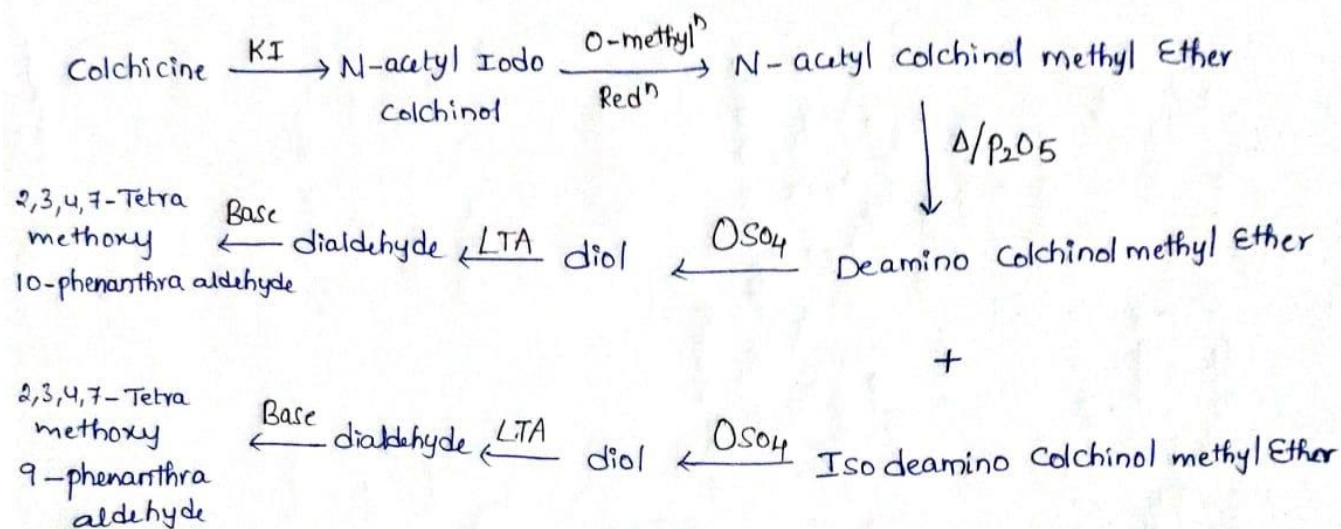 Colchicine KI → N-acetyl Iodo colchinol O-methylⁿ Redⁿ → N-acetyl colchinol methyl Ether
Δ/P₂O₅
2,3,4,7-Tetra methoxy 10-phenanthra aldehyde ← Base dialdehyde ← LTA diol ← OsO₄ Deamino Colchinol methyl Ether
+
2,3,4,7-Tetra methoxy 9-phenanthra aldehyde ← Base dialdehyde ← LTA diol ← OsO₄ Iso deamino colchinol methyl Ether